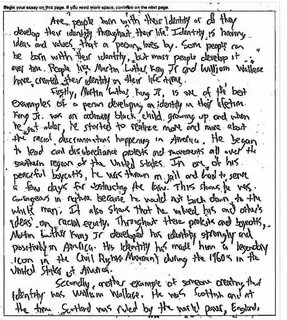 Begin your essay on this page. If you need more space, continue on the next page.
Are people born with their identity or do they
develop their identity throughout their life? Identity is having
ideas and values that a person lives by. Some people can
be born with their identity, but most people develop it
over time. People like Martin Luther King Jr and William Wallace
have created their identity in their life time.
Firstly, Martin Luther King Jr. is one of the best
examples of a person developing an identity in their lifetime.
King Jr. was an ordinary black child, growing up and when
he got older, he started to realize more and more about
the racial discrimination happening in America. He began
to lead and disobedience protests and movements all over the
southern region of the United States. In one of his
peaceful boycotts, he was thrown in jail and had to serve
a few days for obstructing the law. This shows he was
courageous in nature because he would not back down to the
white man. It also shows that he valued his and other's
ideas on racial equity. Throughout these protests and boycotts,
Martin Luther King Jr developed his identity strongly and
positively in America. His identity has made him a legendary
icon in the Civil Rights Movement during the 1960s in the
United States of America.
Secondly, another example of someone creating their
identity was William Wallace. He was Scottish and at
the time Scotland was ruled by the world power, England.